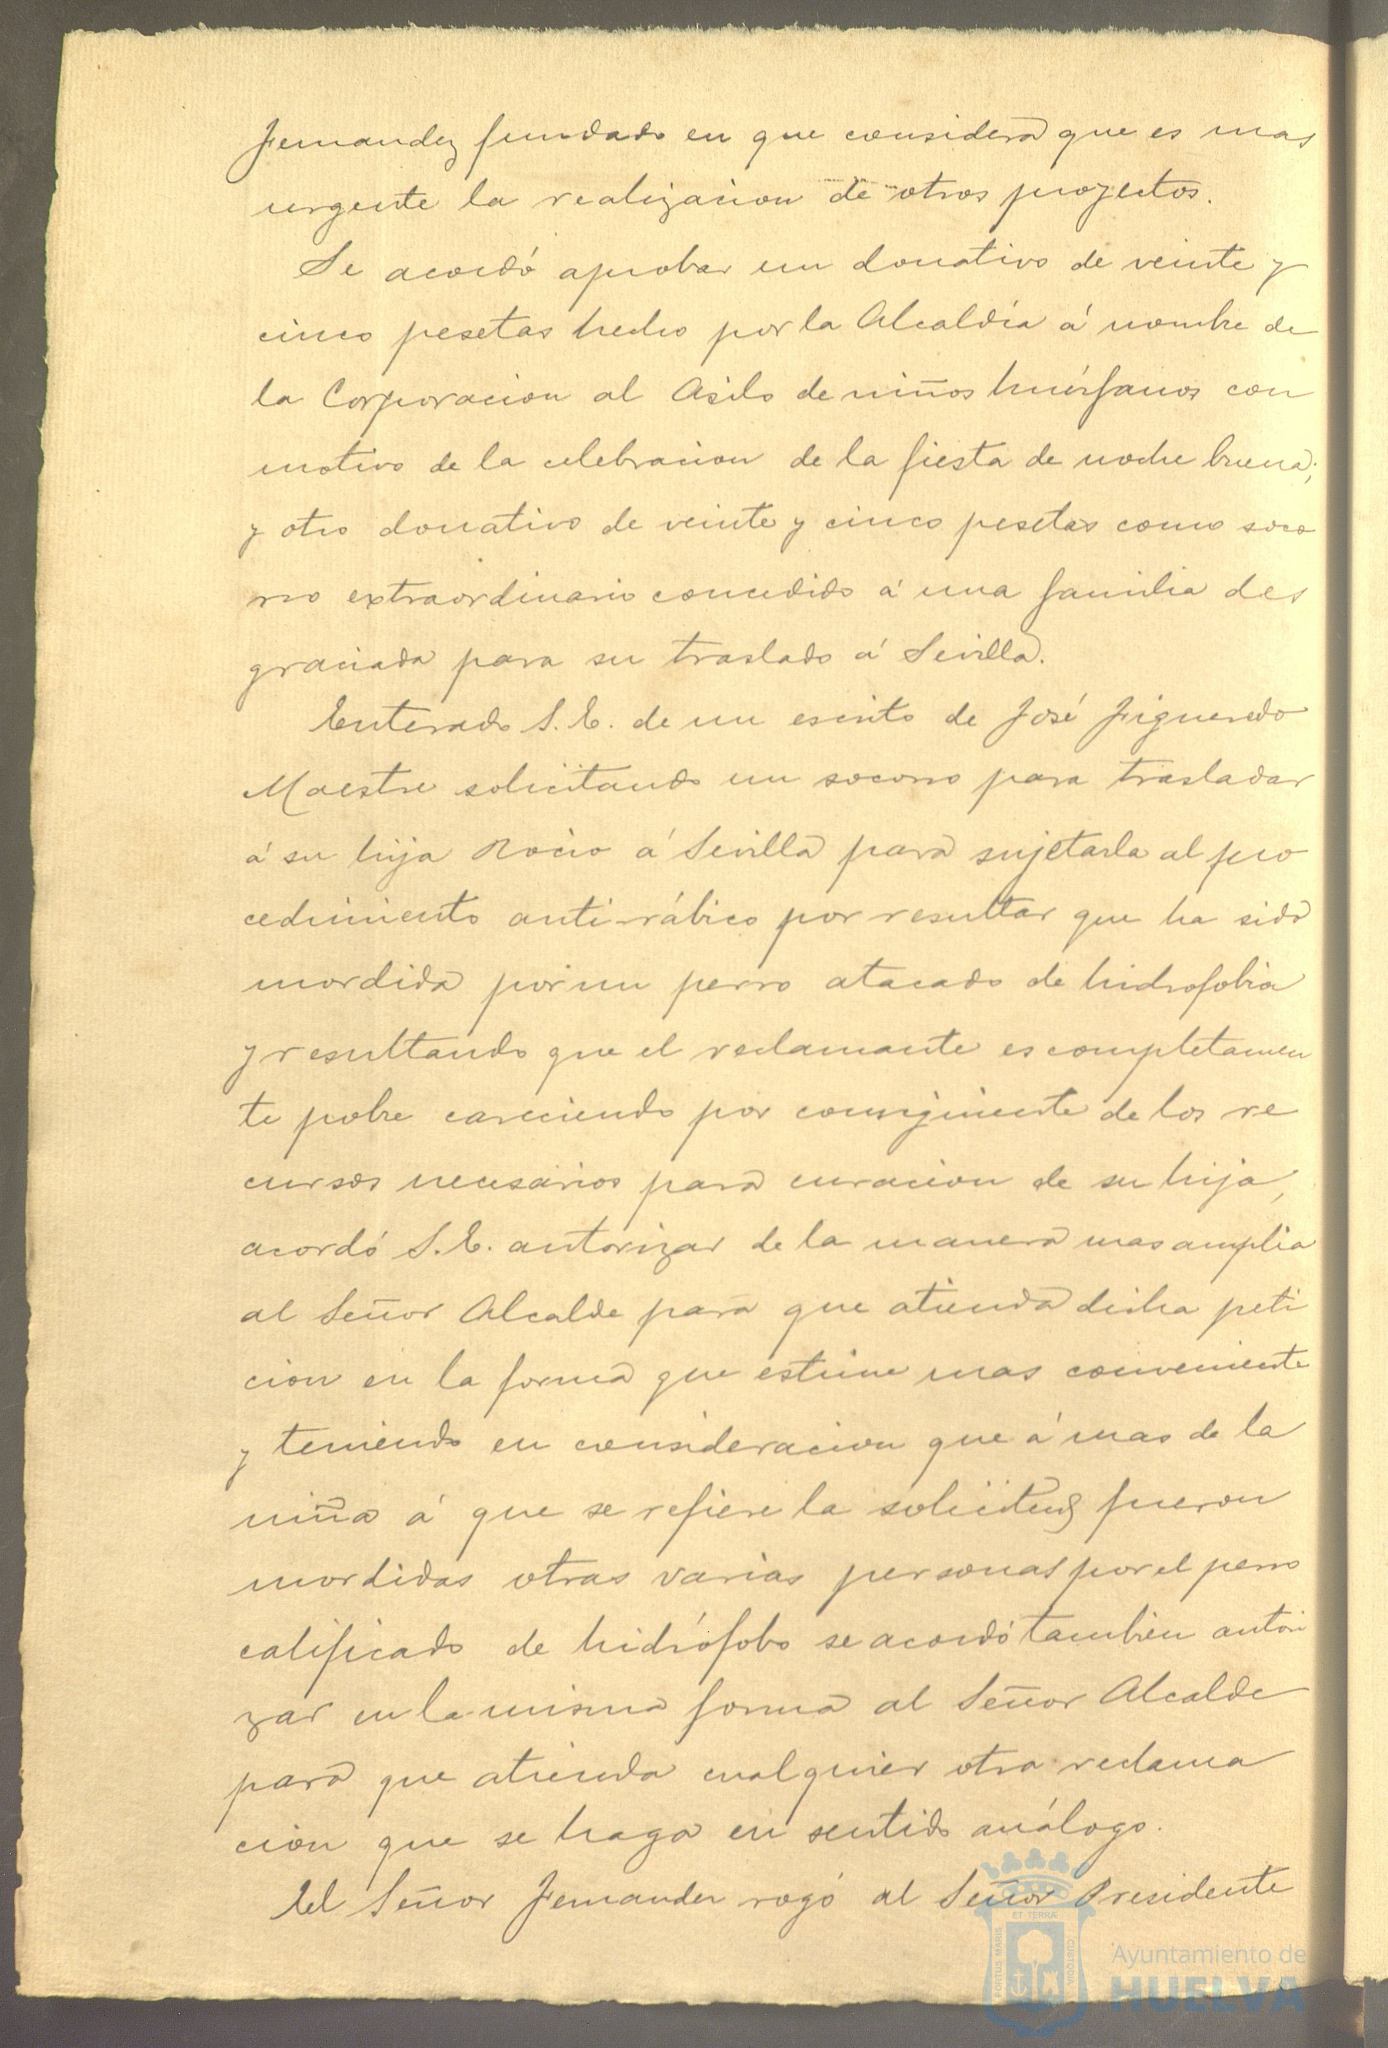 Fernandez fundado en que considera que es mas
urgente la realizacion de otros proyectos.
Se acordó aprobar un donativo de veinte y
cinco pesetas hecho por la Alcaldía á nombre de
la Corporacion al Asilo de niños huérfanos con
motivo de la celebracion de la fiesta de noche buena;
y otro donativo de veinte y cinco pesetas como soco
rro extraordinario concedido á una familia des
graciada para su traslado á Sevilla.
Enterado S.E. de un escrito de José Figueredo
Maestre solicitando un socorro para trasladar
á su hija Rocio á Sevilla para sujetarla al pro
cedimiento anti-rábico por resultar que ha sido
mordida por un perro atacado de hidrofobia
y resultando que el reclamante es completamen
te pobre careciendo por consiguiente de los re
cursos necesarios para curacion de su hija,
acordó S.E. autorizar de la manera mas amplia
al Señor Alcalde para que atienda dicha peti
cion en la forma que estime mas conveniente
y teniendo en consideracion que á mas de la
niña á que se refiere la solicitud fueron
mordidas otras varias personas por el perro
calificado de hidrófobo se acordó tambien autori
zar en la misma forma al Señor Alcalde
para que atienda cualquier otra reclama
cion que se haga en sentido análogo.
El Señor Fernandez rogó al Señor Presidente
ET TERRÆ
PORTUS MARIS
CUSTODIA
Ayuntamiento de
HUELVA